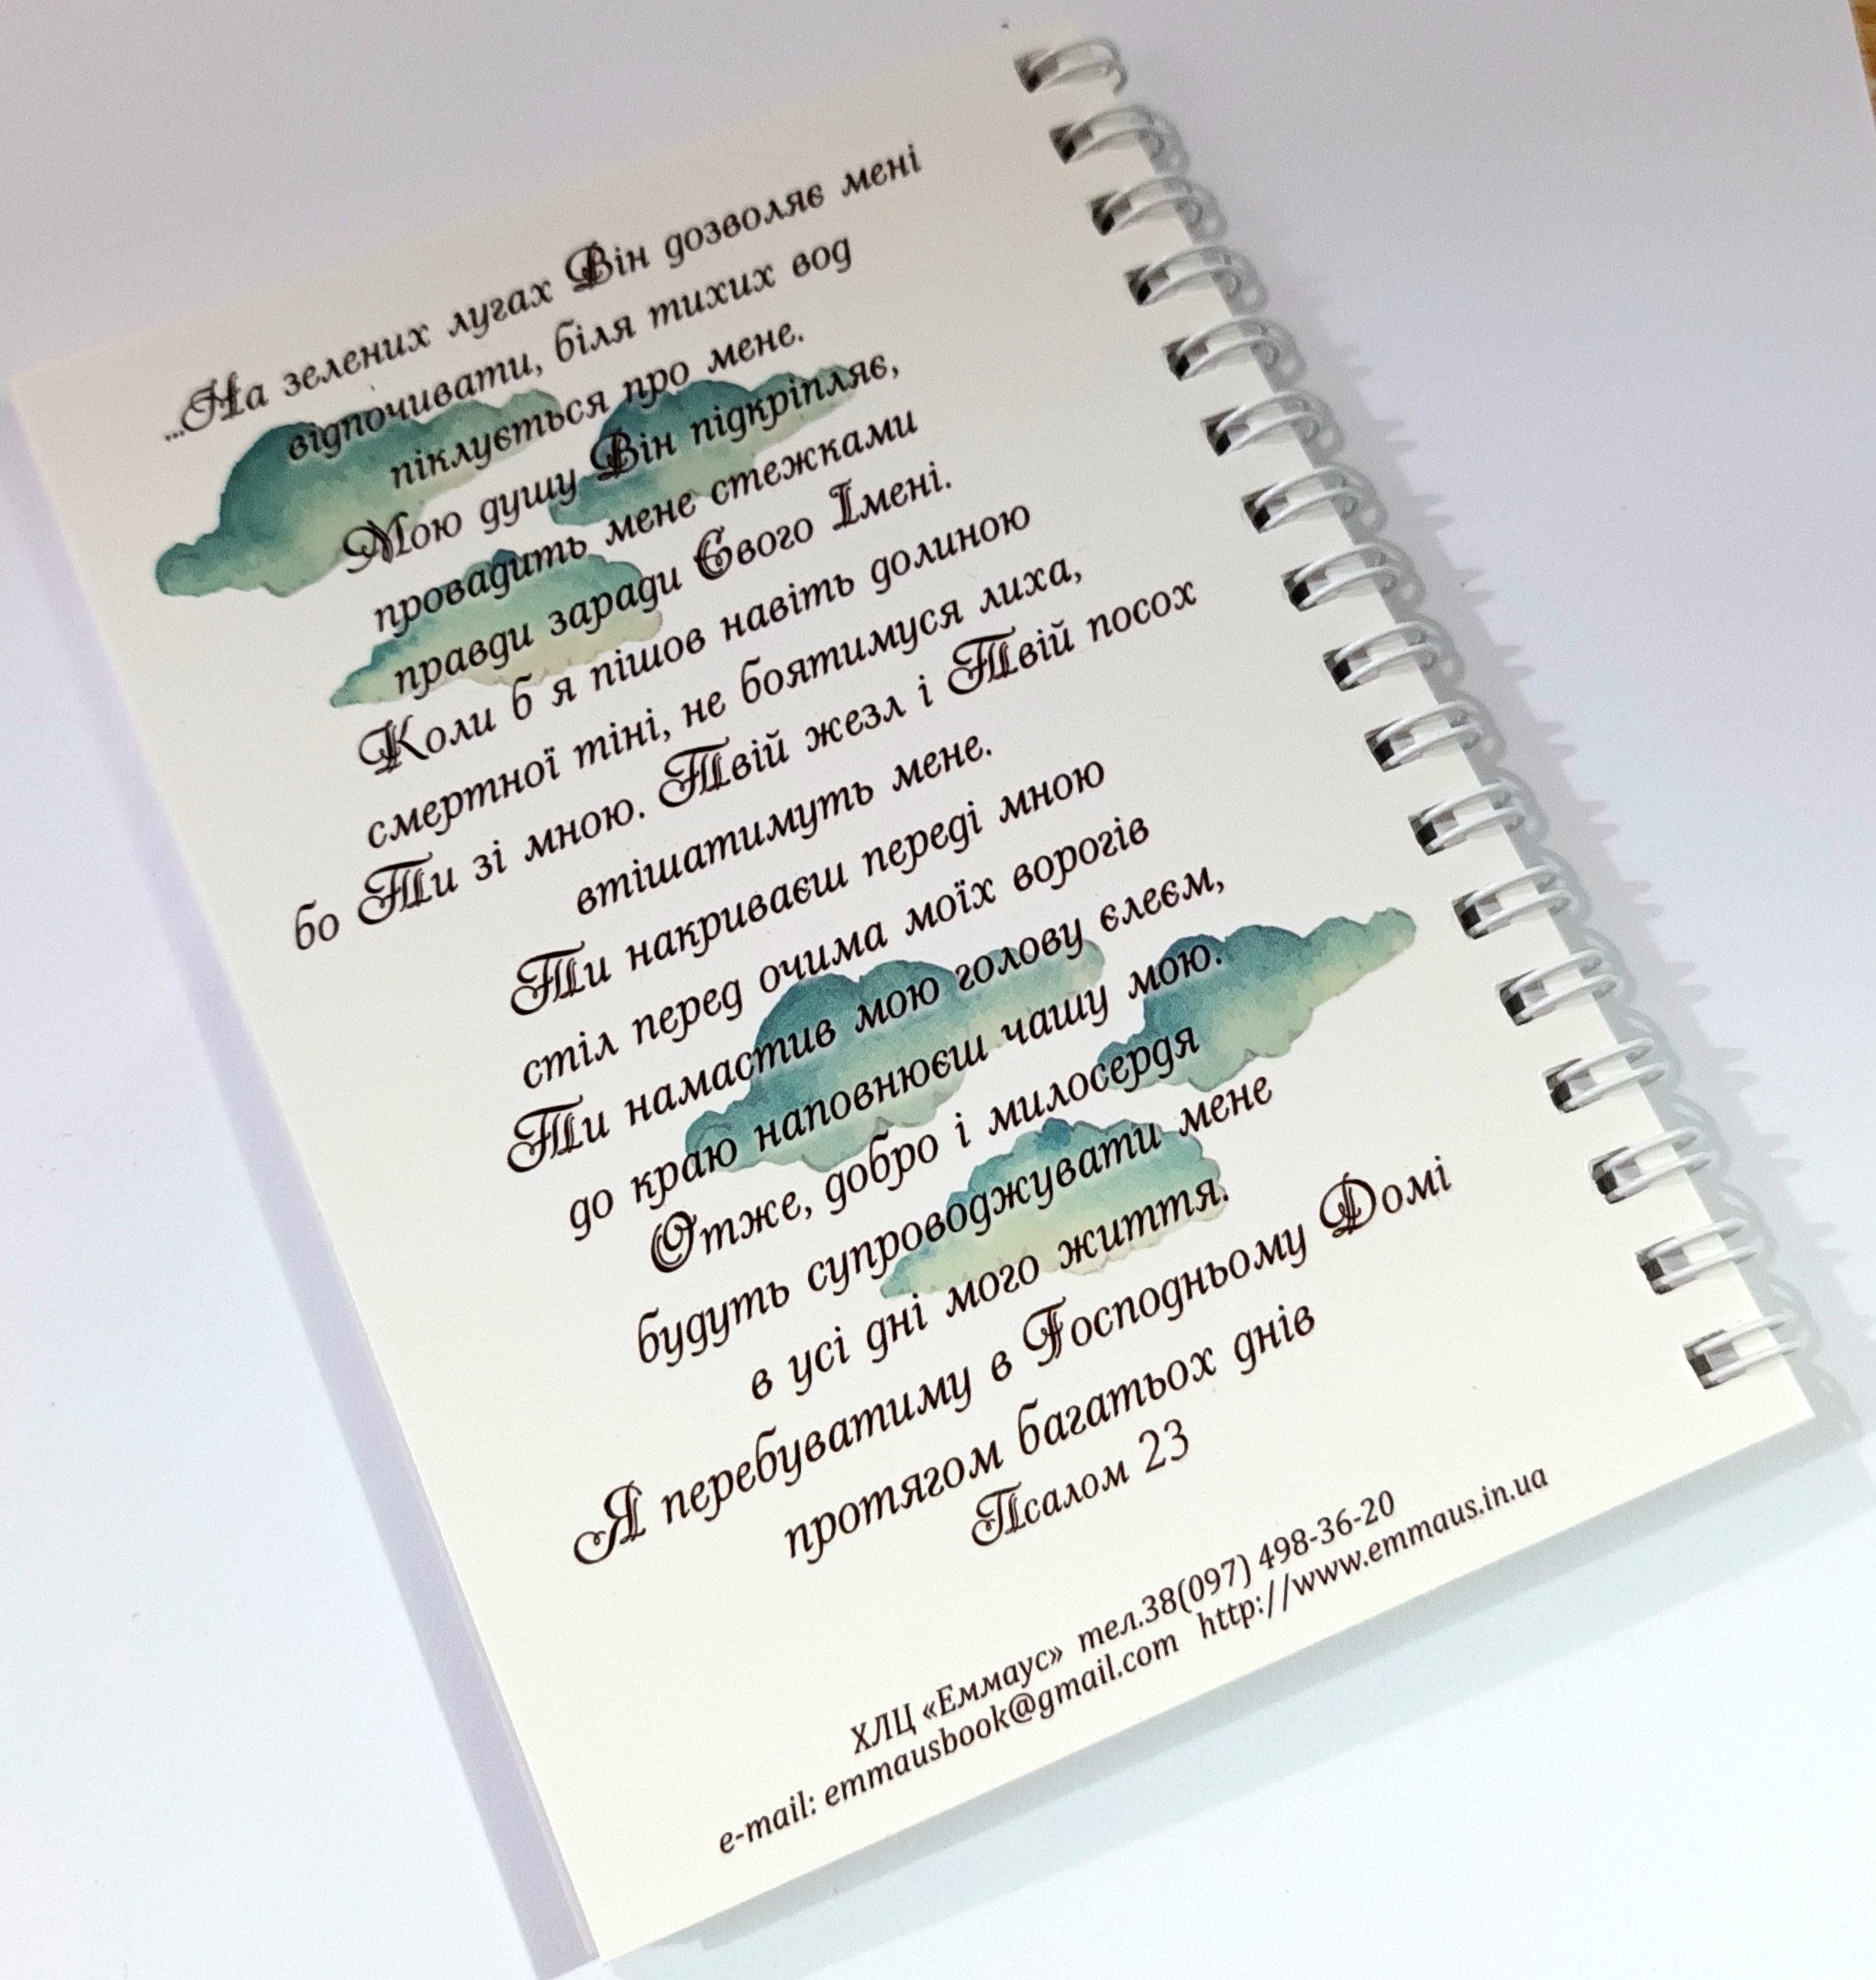 ...На зелених лугах Він дозволяє мені
відпочивати, біля тихих вод
піклується про мене.
Мою душу Він підкріпляє,
провадить мене стежками
правди заради Свого Імені.
Коли б я пішов навіть долиною
смертної тіні, не боятимуся лиха,
бо Ти зі мною. Твій жезл і Твій посох
втішатимуть мене.
Ти накриваєш переді мною
стіл перед очима моїх ворогів
Ти намастив мою голову єлеєм,
до краю наповнюєш чашу мою.
Отже, добро і милосердя
будуть супроводжувати мене
в усі дні мого життя.
Я перебуватиму в Господньому Домі
протягом багатьох днів
Псалом 23
ХЛЦ «Еммаус» тел.38(097) 498-36-20
e-mail: emmausbook@gmail.com http://www.emmaus.in.ua